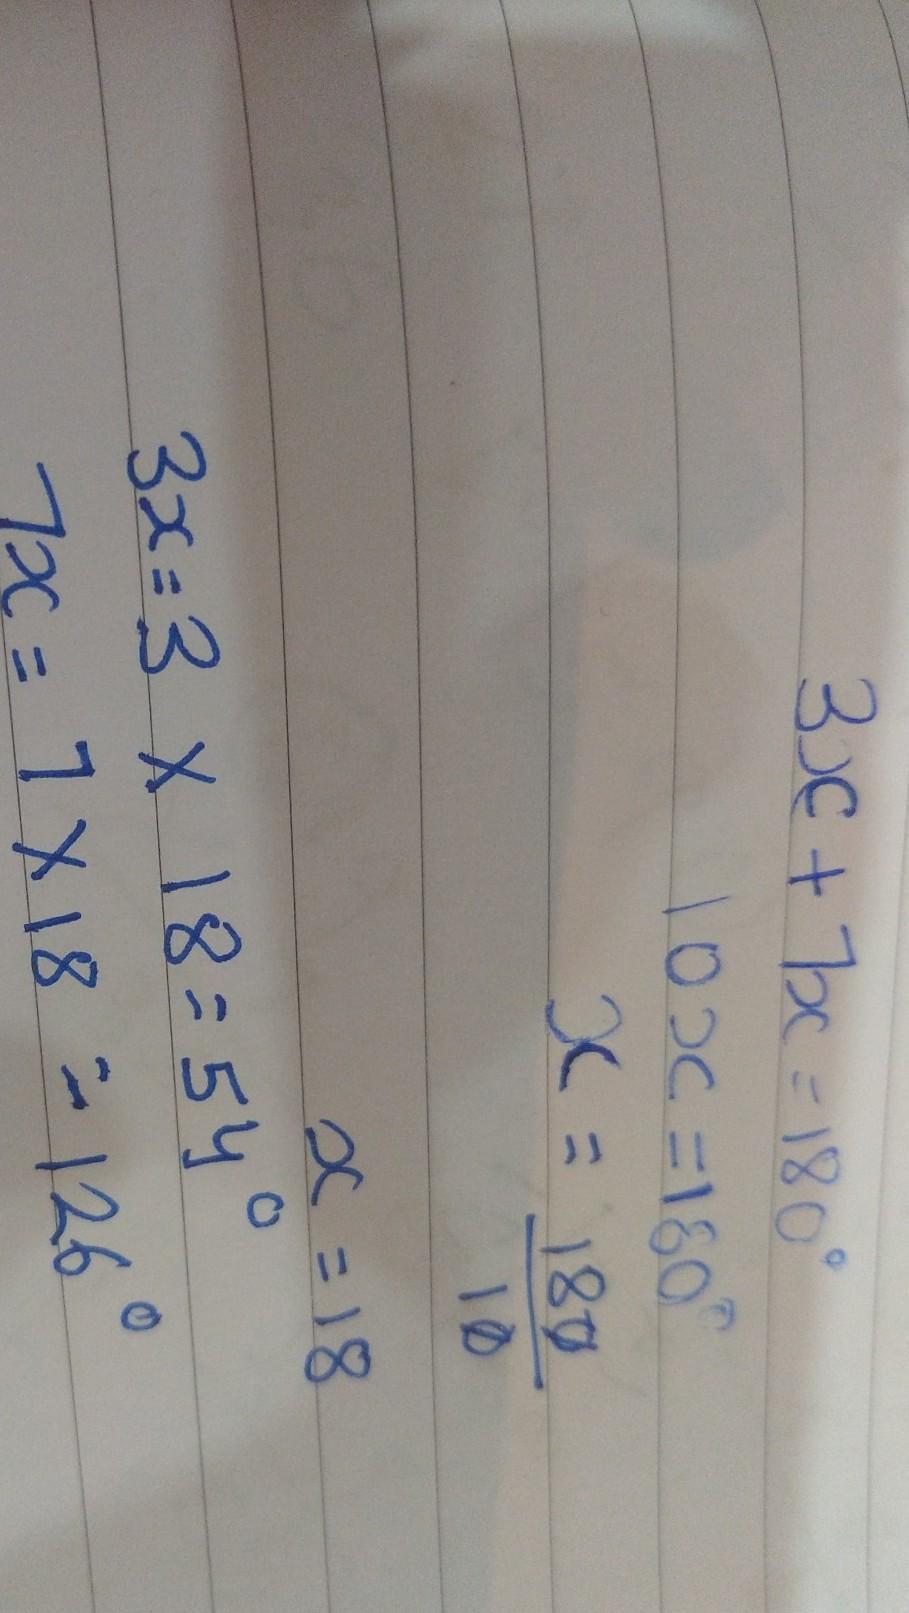 3x + 7x = 180°
10x = 180°
x = 180/10
x = 18
3x = 3 × 18 = 54°
7x = 7 × 18 = 126°